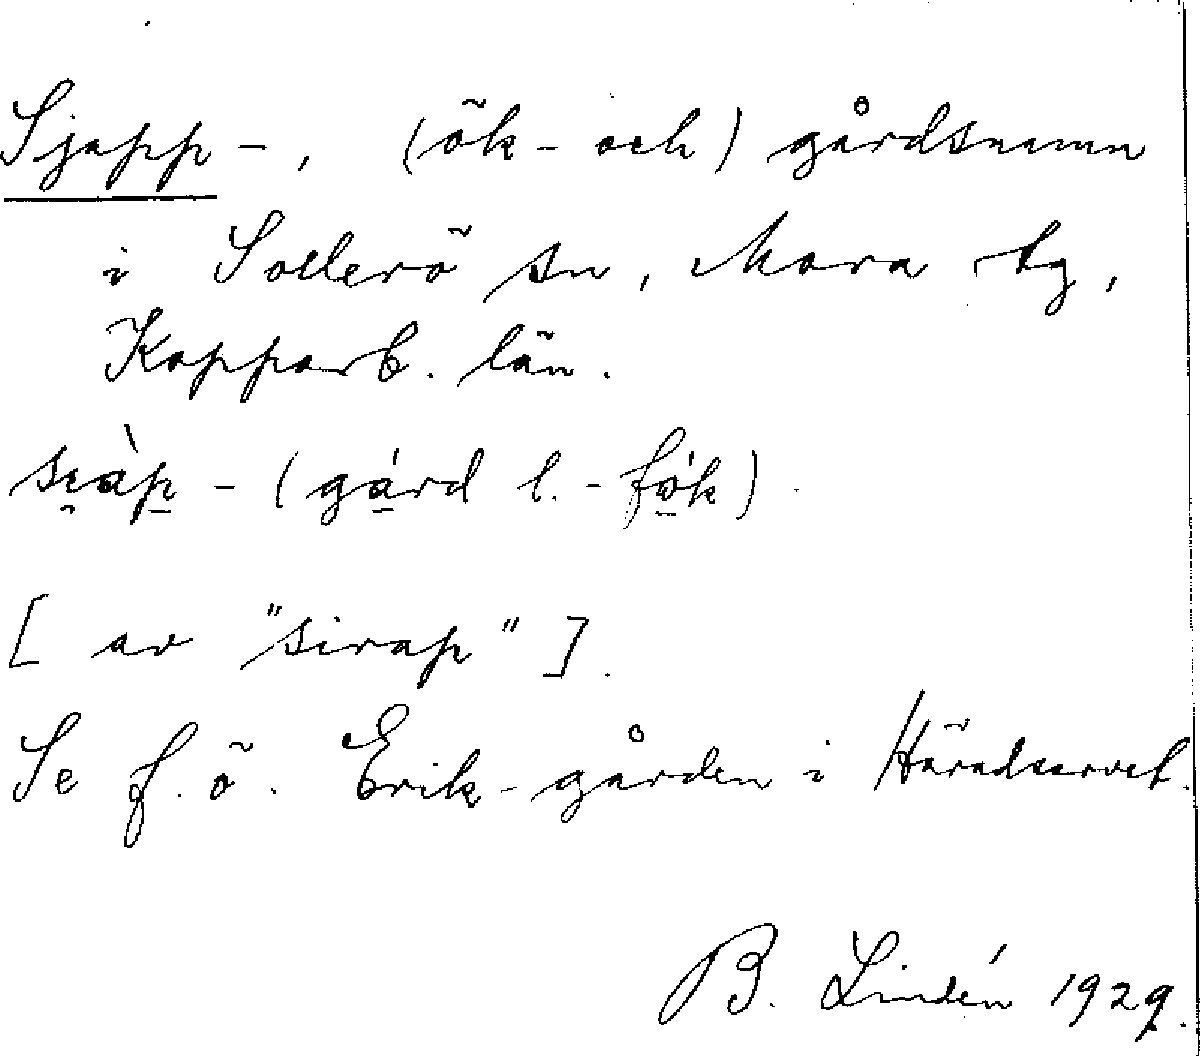 Sjapp-, (ök- och) gårdsnamn
i Sollerö sn, Mora tg,
Kopparb. län.
sı̯àp̠ - (gá̠rd l. - fö́k)
[ av "sirap" ].
Se f. ö. Erik-gården i Häradsarvet.
B. Lindén 1929.